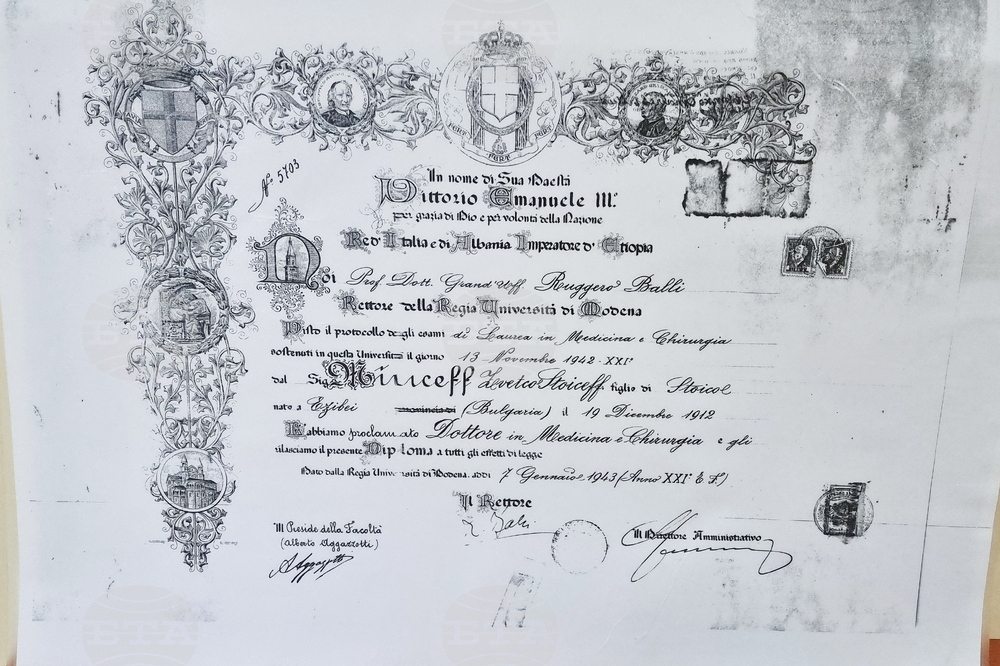 N° 5703
FERT FERT
FERT
In nome di Sua Maestà
Vittorio Emanuele III.°
per grazia di Dio e per volontà della Nazione
Re d'Italia e di Albania Imperatore d'Etiopia
Noi Prof. Dott. Grand'Uff. Ruggero Balli
Rettore della Regia Università di Modena
Visto il protocollo degli esami di Laurea in Medicina e Chirurgia
sostenuti in questa Università il giorno 13 Novembre 1942-XXI°
dal Sig. Minceff Zvetco Stoiceff figlio di Stoicol
nato a Ezibei provincia di (Bulgaria) il 19 Dicembre 1912
l'abbiamo proclamato Dottore in Medicina e Chirurgia e gli
rilasciamo il presente Diploma a tutti gli effetti di legge
Dato dalla Regia Università di Modena addì 7 Gennaio 1943 (Anno XXI° E.F.)
Il Rettore
Il Preside della Facoltà
(Alberto Aggazzotti)
R. Balli
Il Direttore Amministrativo
A Aggazzotti
БТА